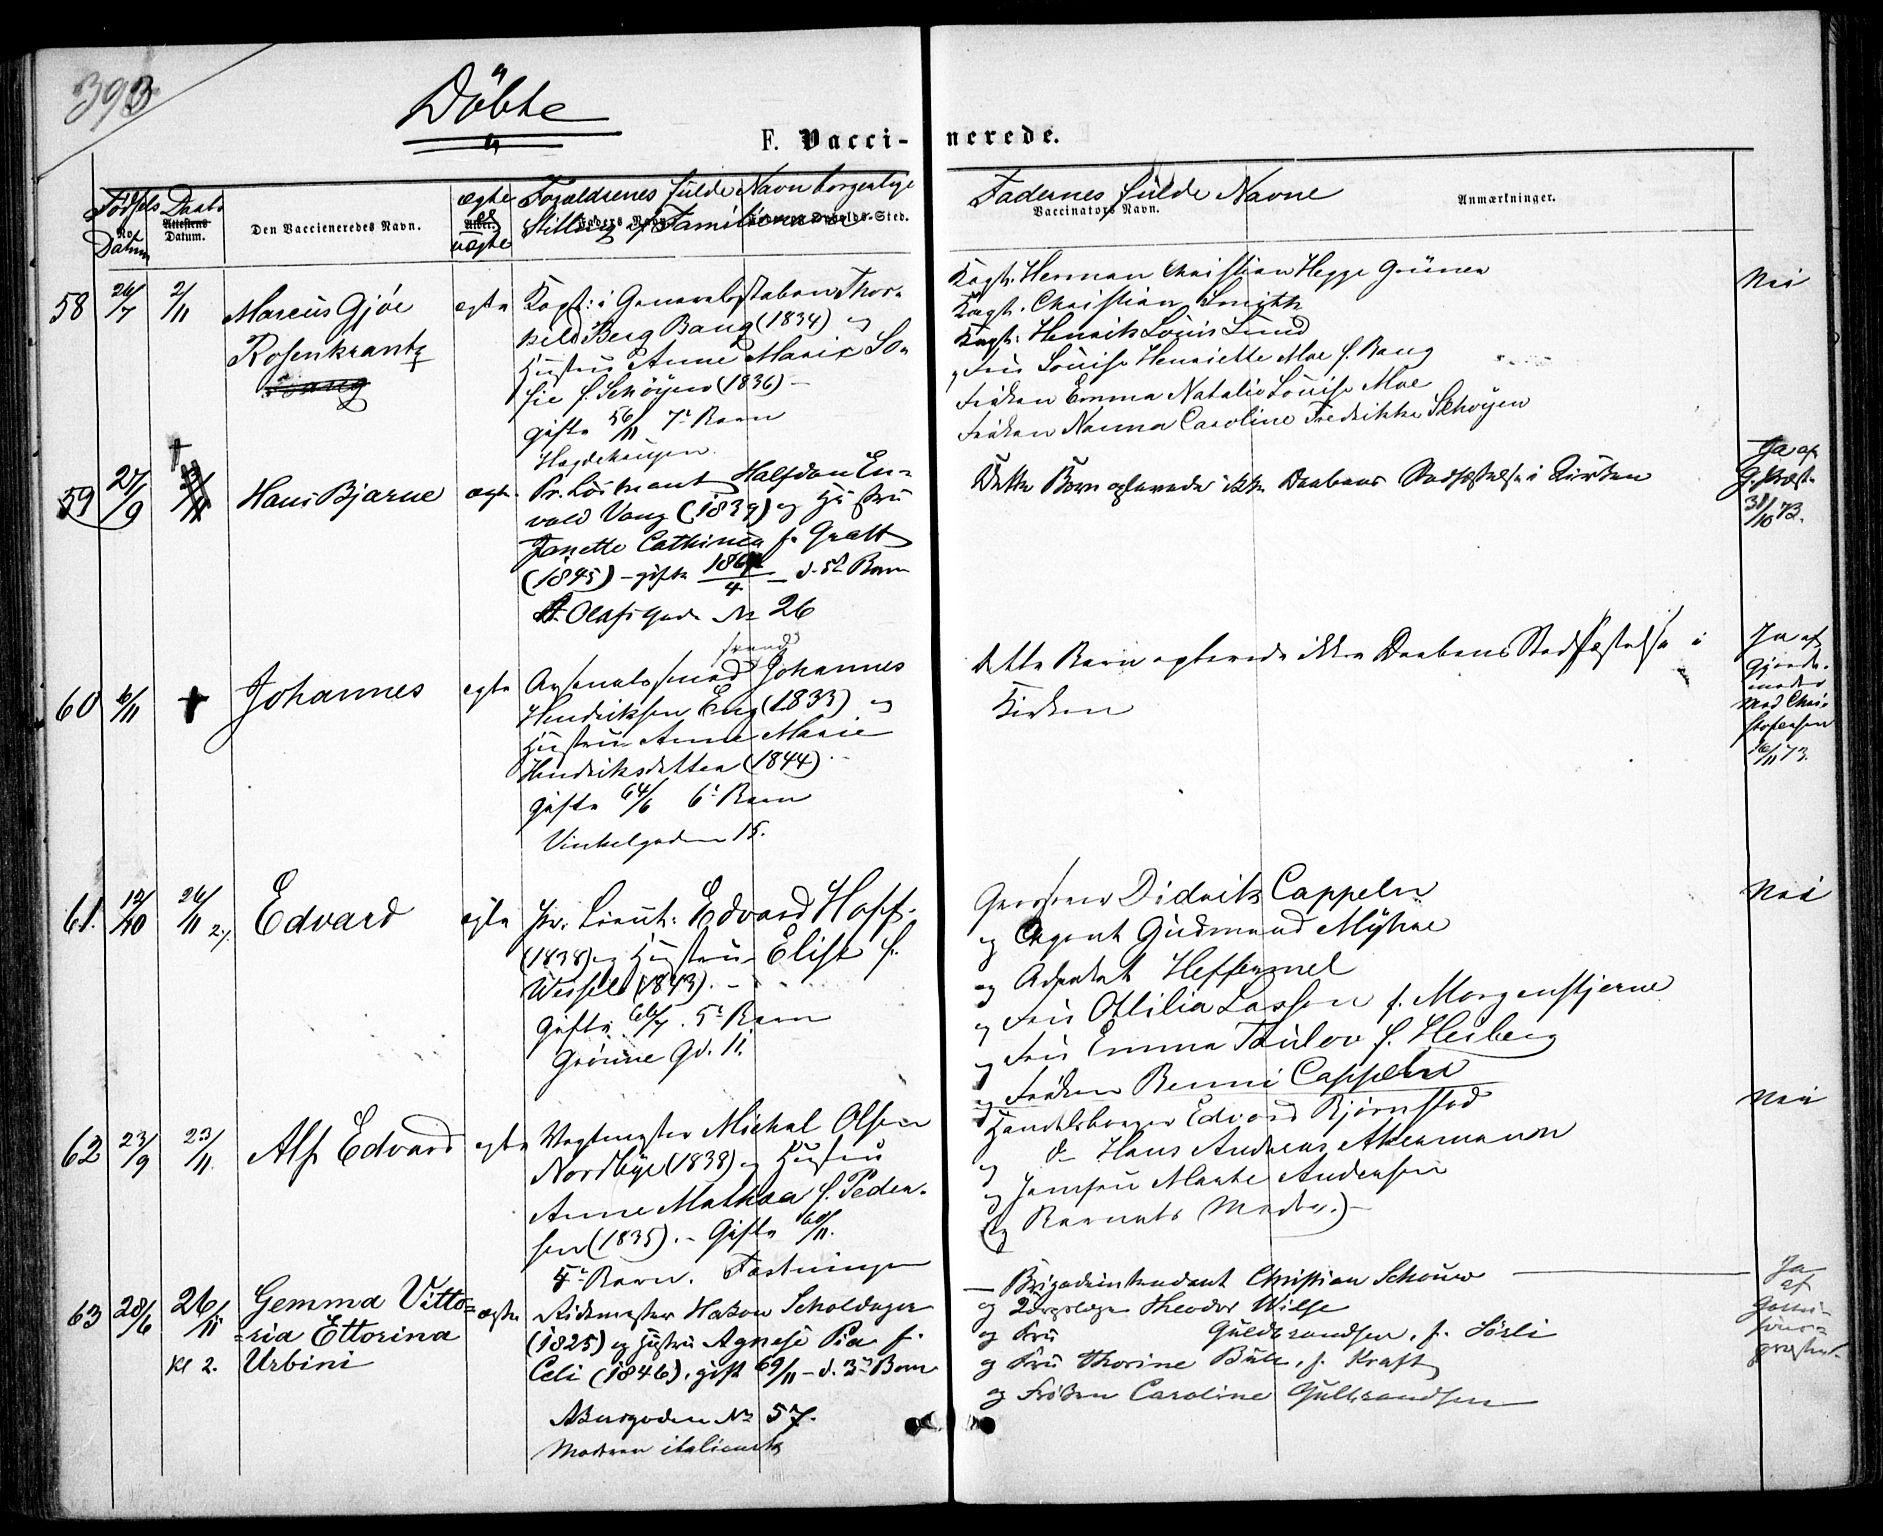 393
Döbte
F. Vacci-nerede.
Fødsels No. Datum
Daabs Attestens Datum.
Den Vaccieneredes Navn.
ægte el Alder. uægte
Forældrenes fulde Navn borgerlige
Stilling og Familienavne
Faders Navn.
Fadernes fulde Navne
Vaccinators Navn.
Anmærkninger.
58 26/7 2/11 Marcus Gjøe
Rosenkrantz
Bang
egte
Kapt: i Generalstaben Thor-
kild Berg Bang (1834) og
Hustru Anne Marie So-
fie f. Schøyen (1836) –
gifte 56/11 7e Barn
Hægdehaugen.
Kapt. Herman Christian Hegge Grüner
Kapt. Christian Smith
Kapt: Henrik Louis Lund
og Fru Louise Henriette Moe f. Bang
Frøken Emma Natalie Louise Moe
Frøken Nanna Caroline Fredrikke Schøyen
Nei
59 27/9 † Hans Bjarne
ægte
Pr. Løitnant Halfdan En-
vald Vang (1839) og Hustru
Janette Cathinca f. Gratt
(1845) – gifte 1864/4 – d. 5te Barn
St. Olafs Gade No 26
Dette Barn oplevede ikke Daabens Stadfæstelse i Kirken
Ja af
G. Præst
31/10 73.
60 6/11 † Johannes
egte
Arsenalssmed Johannes
svend
Hendriksen Eng (1833) og
Hustru Anne Marie
Hendriksdatter (1844)
Gifte 64/6 6e Barn
Vinkelgaden 15.
dette Barn oplevede ikke Daabens Stadfæstelse i
Kirken
Ja af
Gjorde-
moder
Mad Chri-
stofersen
6/11 73.
61. 12/10 24/11 2. Edvard
egte
Pr. Lieut: Edvard Hoff.
(1838) og Hustru Elise f.
Wessel (1843). –
Gifte 66/7. 5e Barn
Grønne Gd. 11.
Grosserer Didrik Cappelen
og Agent Gudmund Myhre
og Advokat Heffermel
og Fru Ottilia Lasson f. Morgenstjerne
og Fru Emma Taulow f. Heiberg
og Frøken Benni Cappelen
Nei
62 23/9 23/11 Alf Edvard
egte
Vagtmester Mickal Olsen
Nordbye (1838) og Hustru
Anne Mathea f. Peder-
sen (1835). – Gifte 60/11.
5e Barn. Fæstningen
Handelsborger Edvard Bjørnstad
og do Hans Andreas Akermann
og Jomfru Marte Andersen
(og Barnets Moder.) –
Nei
63 28/6 26/11 Kl 2. Gemma Vitto-
-ria Ettorina
Urbini
ægte
Ridmester Hakon Scholdager
(1825) og Hustru Agnese Pia f.
Celi (1846). gift 69/11 – d. 3die Barn
Akersgaden No 57.
Modren italiensk
– Brigadeintendant Christian Schouw –
og Korpslæge Theodor Wilse
og Fru Guldbrandsen, f. Sørli
og Fru Thorine Bull, f. Kraft
og Frøken Caroline Gulbrandsen
Ja
af
Garni-
sons-
præsten.